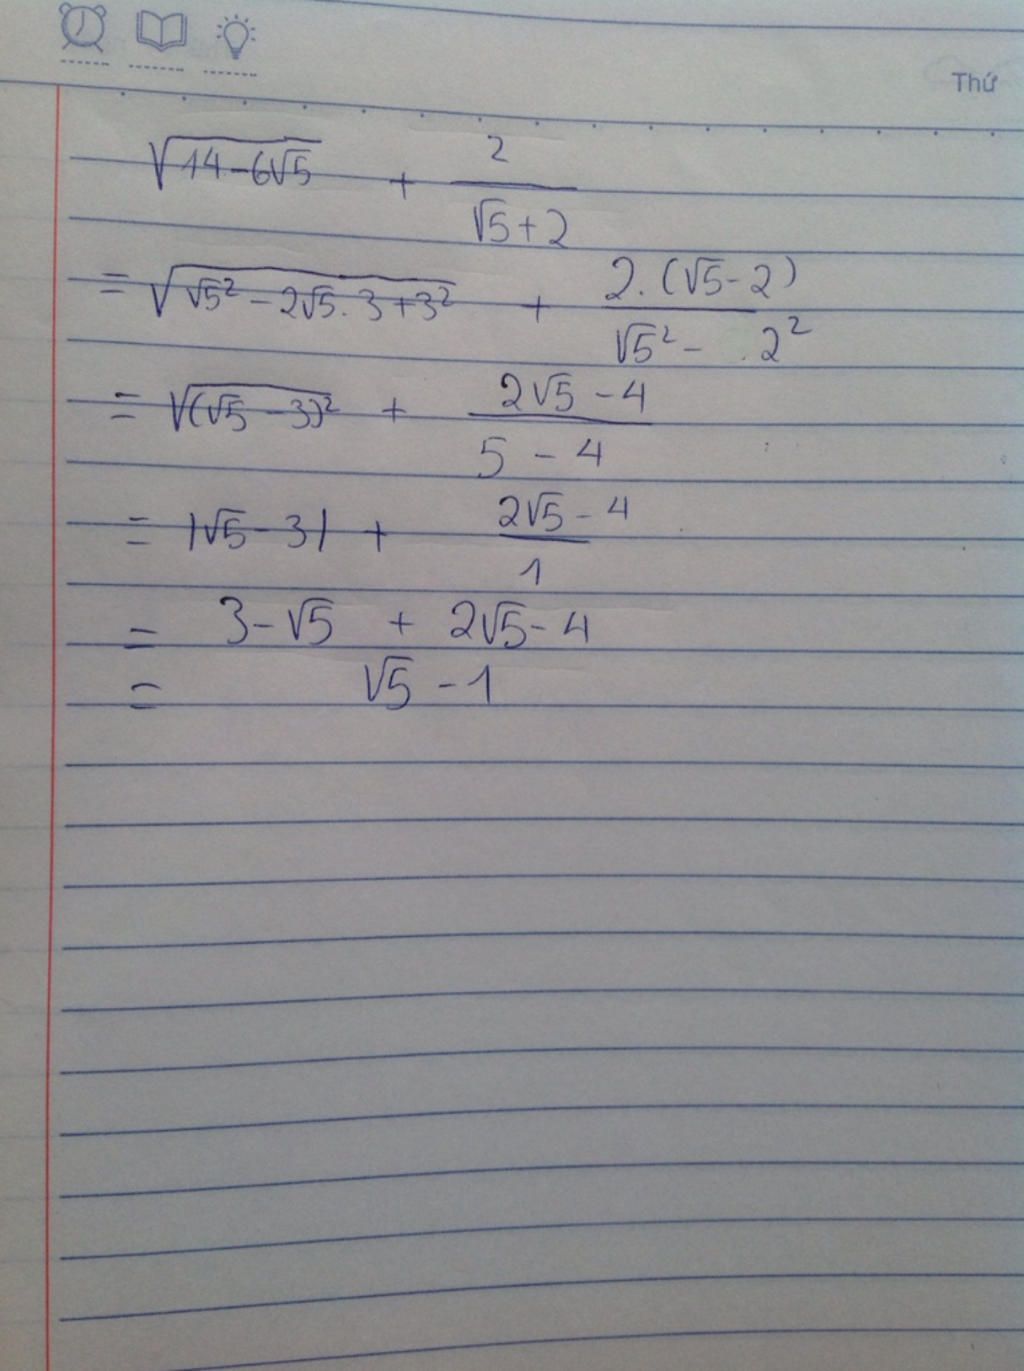 Thứ
√(14-6√5) + 2/(√5+2)
= √(√5² - 2√5.3+3²) + 2.(√5-2)/(√5² - .2²)
= √((√5-3)²) + (2√5-4)/(5-4)
= |√5-3| + (2√5-4)/1
= 3-√5 + 2√5-4
= √5-1